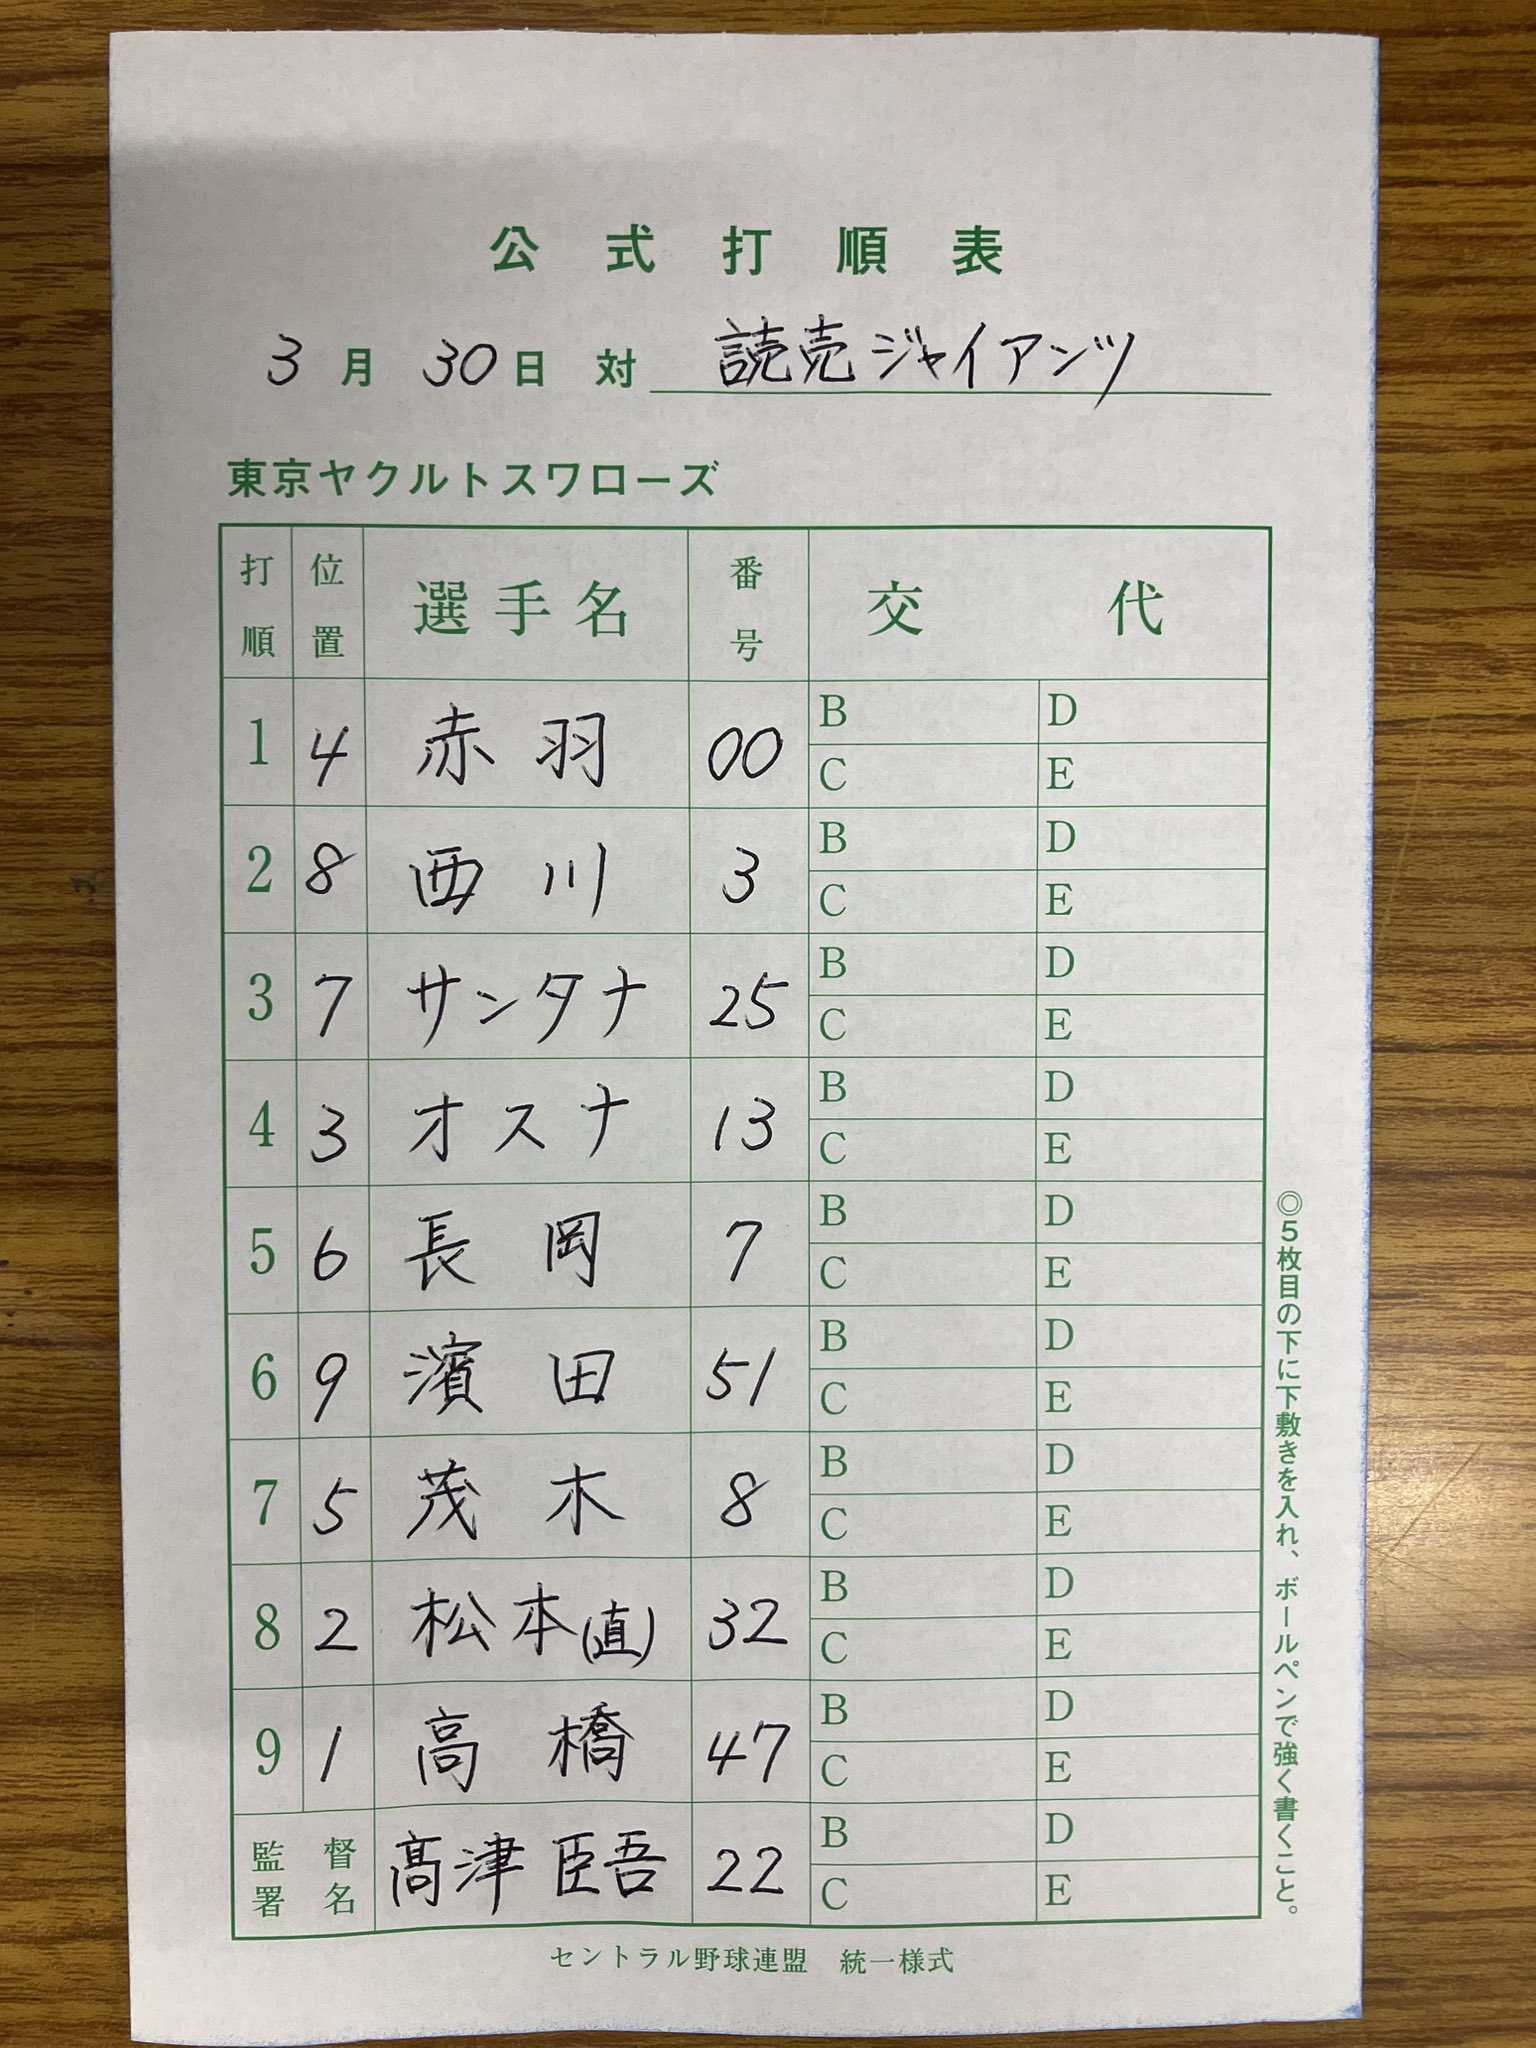 公式打順表
3月30日 対 読売ジャイアンツ
東京ヤクルトスワローズ
打順 位置 選手名 番号 交代
1 4 赤羽 00 B D
C E
2 8 西川 3 B D
C E
3 7 サンタナ 25 B D
C E
4 3 オスナ 13 B D
C E
5 6 長岡 7 B D
C E
6 9 濱田 51 B D
C E
7 5 茂木 8 B D
C E
8 2 松本(直) 32 B D
C E
9 1 高橋 47 B D
C E
監督署名 髙津臣吾 22 B D
C E
セントラル野球連盟 統一様式
◎5枚目の下に下敷きを入れ、ボールペンで強く書くこと。